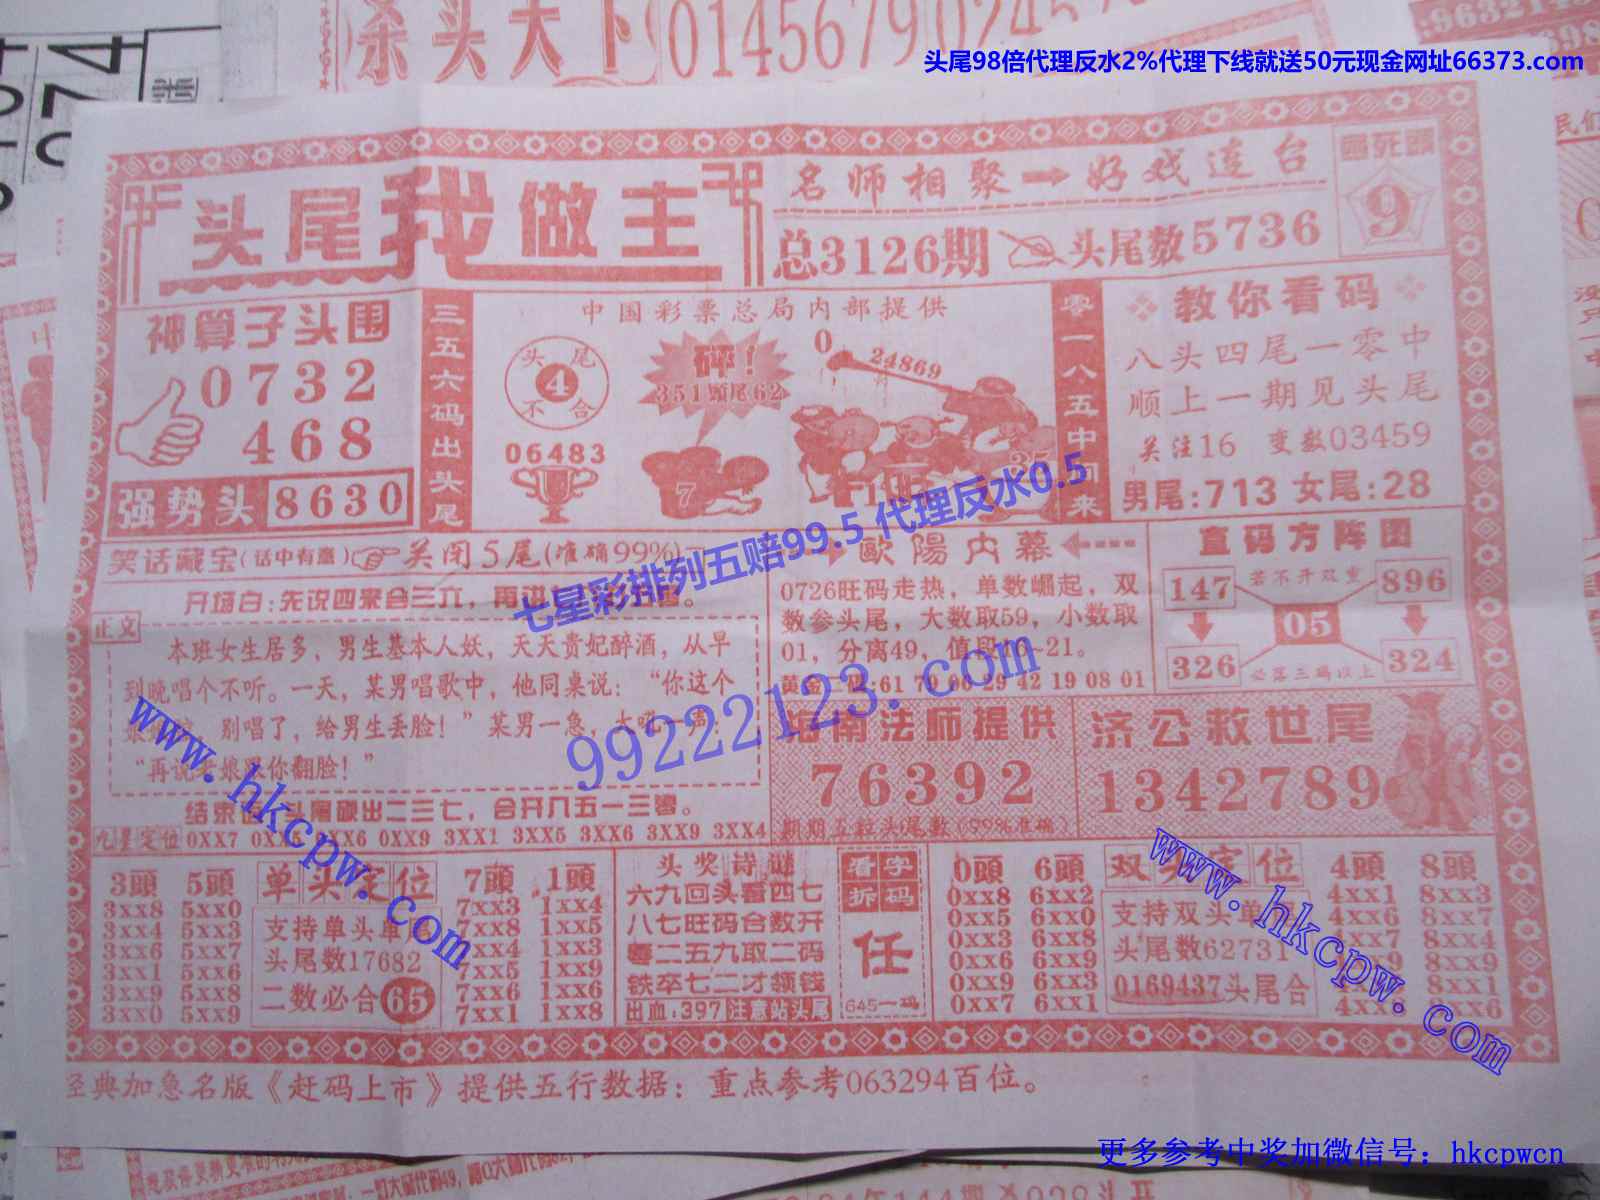 杀头天下 0145679
头尾98倍代理反水2%代理下线就送50元现金网址66373.com
头尾我做主
名师相聚→好戏连台
总3126期
头尾数5736
9
神算子头围
0732
468
强势头 8630
三五六码出头尾
中国彩票总局内部提供
头尾
4
不合
06483
砰!
351 62
7
0
24869
零一八五中回来
教你看码
八头四尾一零中
顺上一期见头尾
关注16 变数03459
男尾:713 女尾:28
笑话藏宝(话中有意) 关闭5尾(准确99%)
开场白:先说四来合三六,再讲
正文
本班女生居多,男生基本人妖,天天贵妃醉酒,从早
到晚唱个不听。一天,某男唱歌中,他同桌说:“你这个
别唱了,给男生丢脸!”某男一急,大吼一声:
“再说老娘跟你翻脸!”
头尾碰出二三七,合开八五一三零。
九星定位 0XX7 0XX9 3XX1 3XX5 3XX6 3XX9 3XX4
歐陽内幕
0726旺码走热,单数崛起,双
数参头尾,大数取59,小数取
01,分离49,值段16~21。
29 42 19 08 01
直码方阵图
147 若不开双重 896
05
326 必落三码以上 324
海南法师提供
76392
期期五粒头尾数(99%准确)
济公救世尾
1342789
七星彩排列五赔99.5 代理反水0.5
99222123.com
www.hkcpw.com
www.hkcpw.com
3頭 5頭 单头定位 7頭 1頭
3xx8 5xx0 7xx3 1xx4
3xx4 5xx3 支持单头单 7xx8 1xx5
3xx6 5xx7 头尾数17682 1xx3
3xx1 5xx6 7xx5 1xx9
3xx9 5xx8 二数必合65 7xx6 1xx6
3xx0 5xx9 7xx1 1xx8
头奖诗谜
六九回头看四七
八七旺码合数开
粤二五九取二码
铁卒七二才领钱
出血:397 注意站头尾
看字拆码
任
645一码
0頭 6頭 双头定位 4頭 8頭
0xx8 6xx2 4xx1 8xx3
0xx5 6xx0 支持双头单 4xx6 8xx7
0xx3 6xx8 头尾数62731 8xx4
0xx6 6xx5 8xx9
0xx9 6xx3 0169437头尾合 8xx1
0xx7 6xx1 8xx6
经典加急名版《赶码上市》提供五行数据:重点参考063294百位。
更多参考中奖加微信号:hkcpwcn